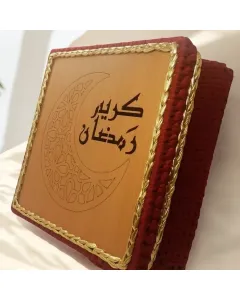 كريم
رَمضان